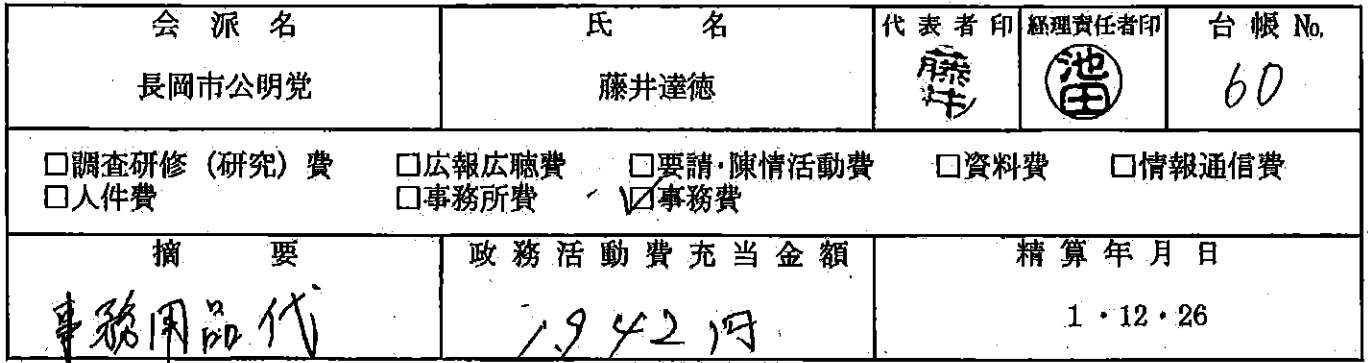 会派名 氏名 代表者印 経理責任者印 台帳No.
長岡市公明党 藤井達徳 藤井 池田 60
□調査研修（研究）費 □広報広聴費 □要請・陳情活動費 □資料費 □情報通信費
□人件費 □事務所費 ☑事務費
摘要 政務活動費充当金額 精算年月日
事務用品代 1,942円 1・12・26